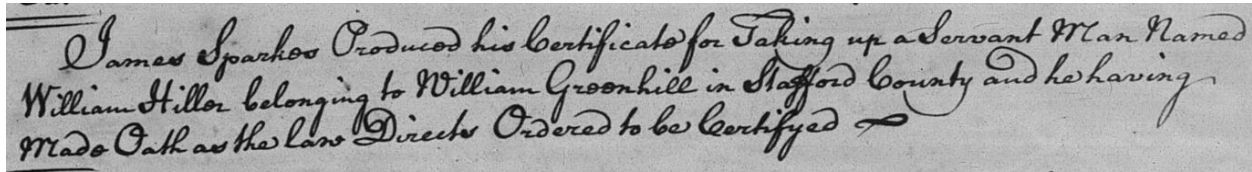 James Sparkes Produced his Certificate for Taking up a Servant Man Named
William Hiller belonging to William Greenhill in Stafford County and he having
Made Oath as the law Directs Ordered to be Certifyed